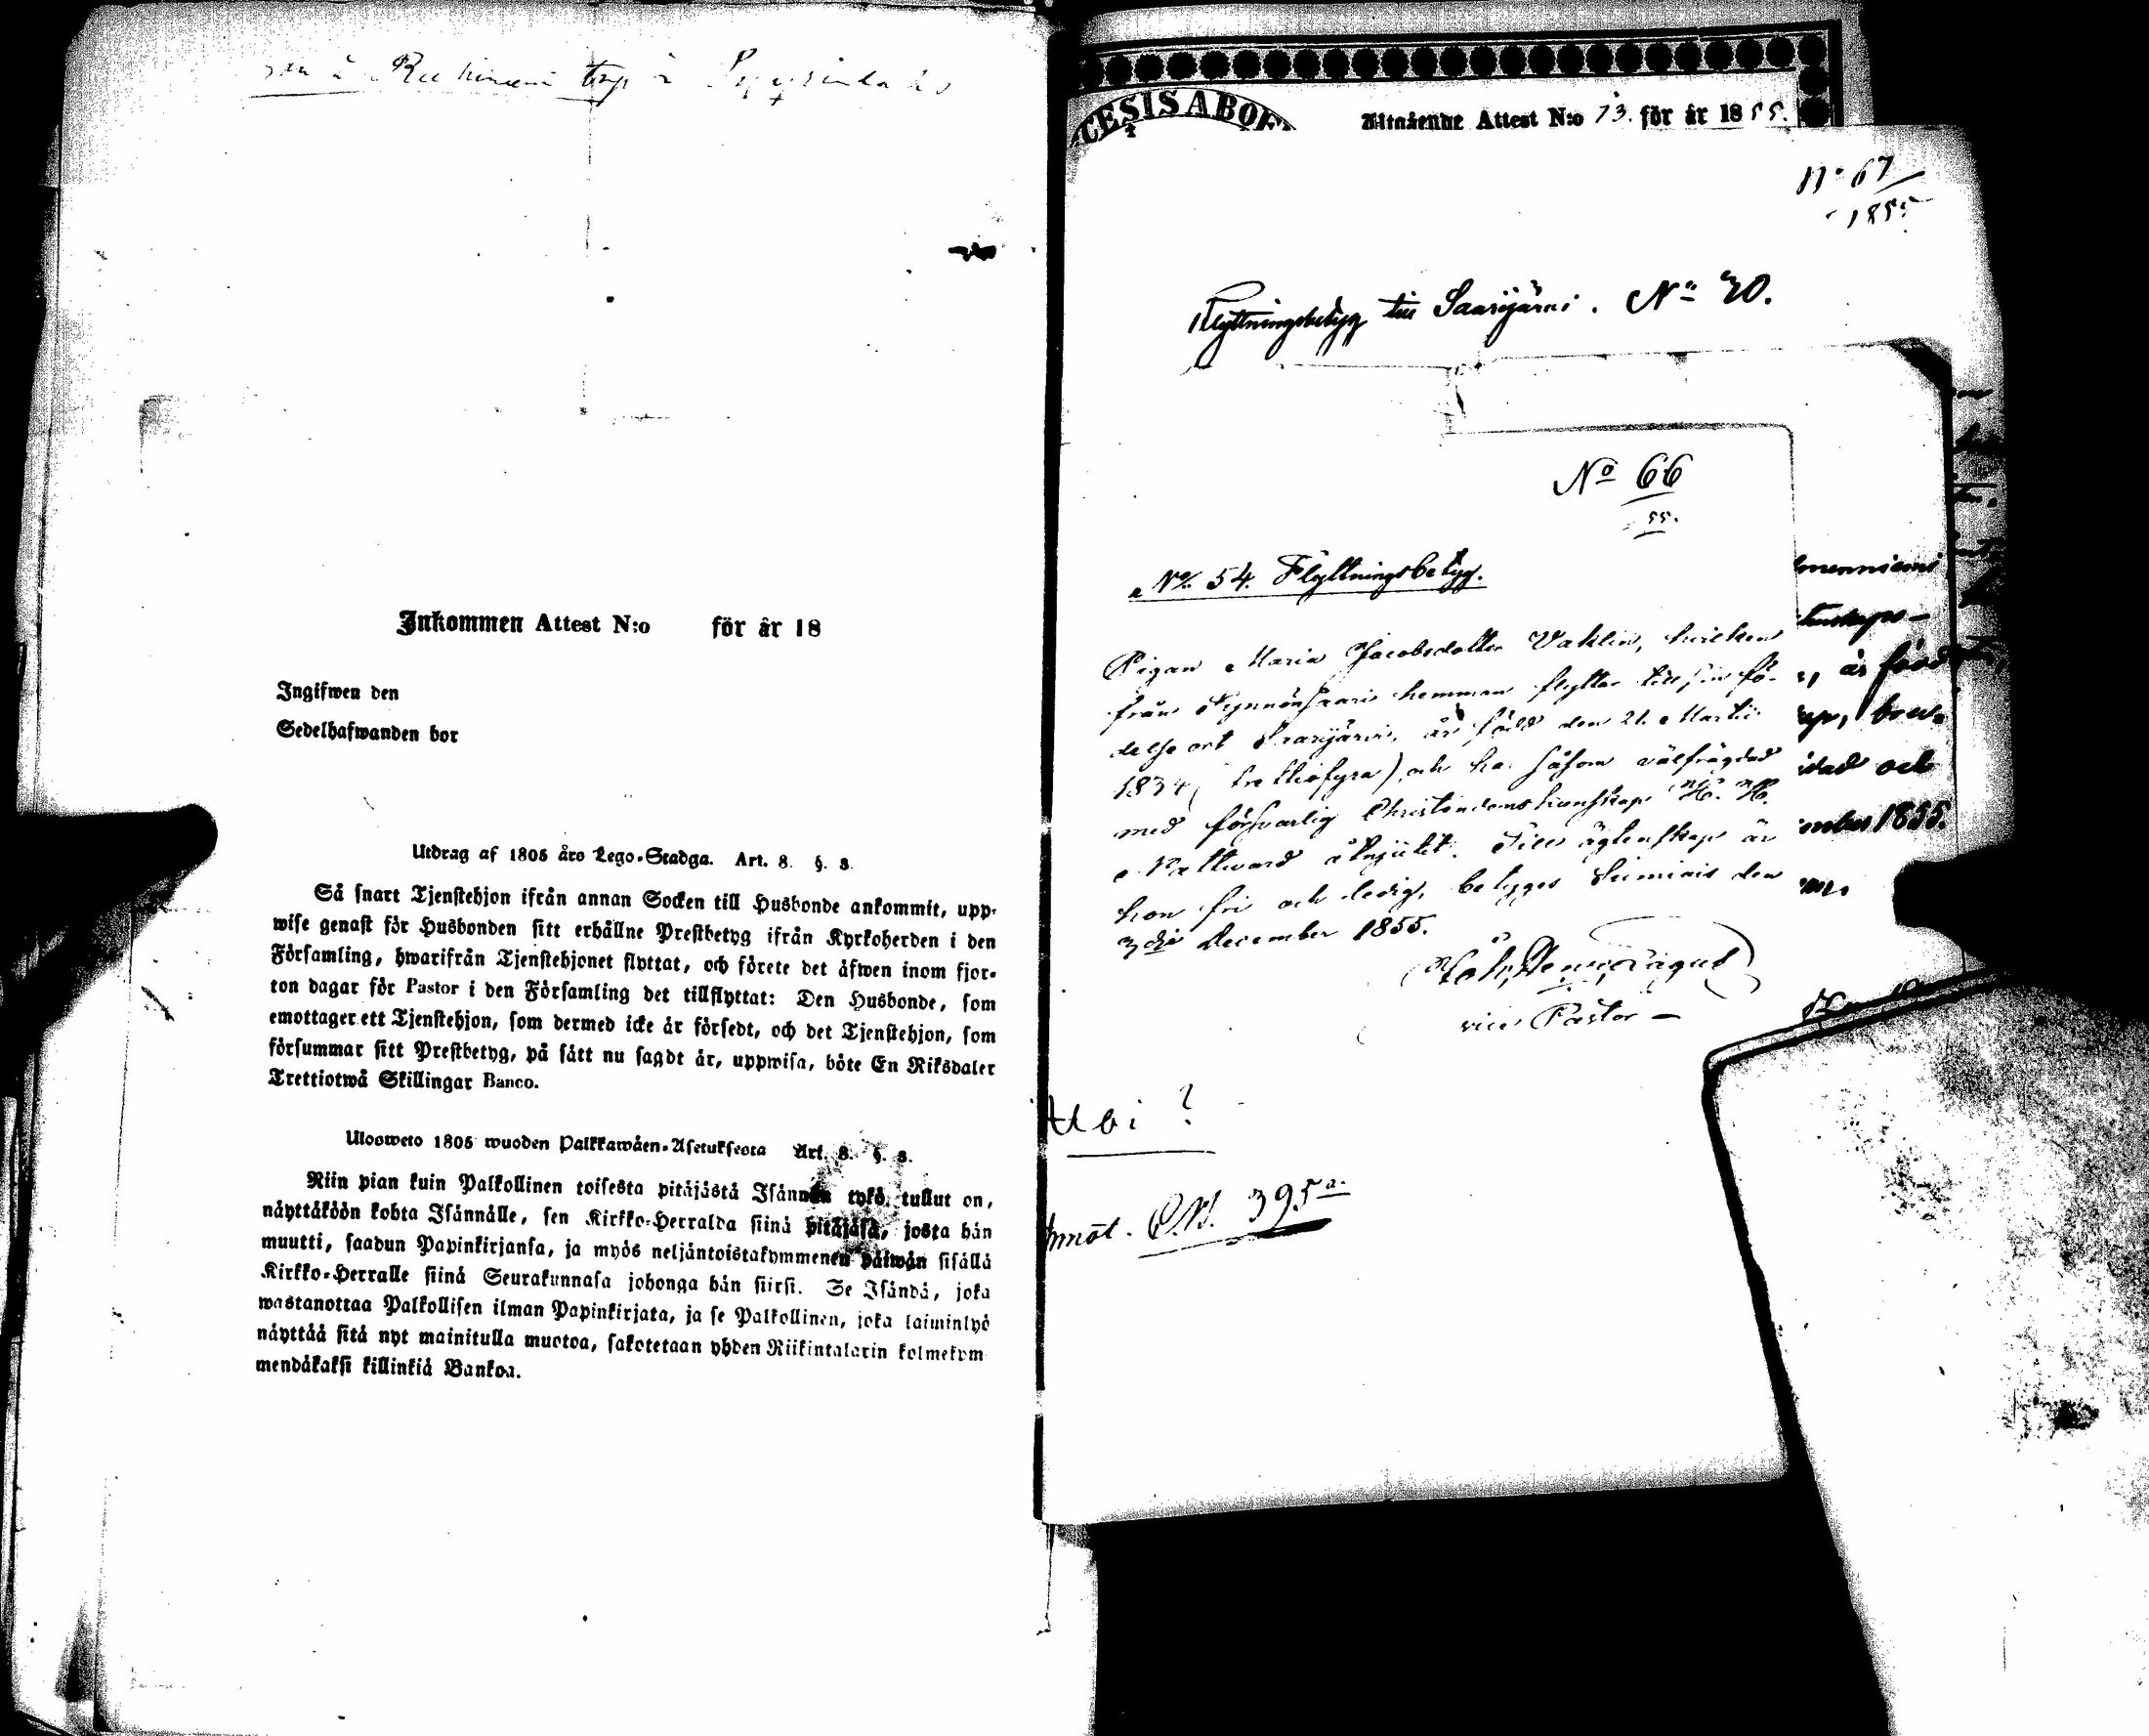 Inkommen Attest N:o för år 18
Ingifwen den
Sedelhafwanden bor
Utdrag af 1805 års Lego-Stadga. Art. 8. §. 8.
Så snart Tjenstehjon ifrån annan Socken till Husbonde ankommit, upp-
wise genast för Husbonden sitt erhållne Prestbetyg ifrån Kyrkoherden i den
Församling, hwarifrån Tjenstehjonet flyttat, och förete det äfwen inom fjor-
ton dagar för Pastor i den Församling det tillflyttat: Den Husbonde, som
emottager ett Tjenstehjon, som dermed icke är försedt, och det Tjenstehjon, som
försummar sitt Prestbetyg, på sätt nu sagdt är, uppwisa, böte En Riksdaler
Trettiotwå Skillingar Banco.
Ulosweto 1805 wuoden Palkkawäen-Asetuksesta Art. 8. §. 8.
Niin pian kuin Palkollinen toisesta pitäjästä Isännän tykö tullut on,
näyttäköön kohta Isännälle, sen Kirkko-Herralda siinä pitäjäsä, josta hän
muutti, saadun Papinkirjansa, ja myös neljäntoistakymmenen päiwän sisällä
Kirkko-Herralle siinä Seurakunnasa johonga hän siirsi. Se Isändä, joka
wastanottaa Palkollisen ilman Papinkirjata, ja se Palkollinen, joka laiminlyö
näyttää sitä nyt mainitulla muotoa, sakotetaan yhden Riikintalarin kolmekym
mendäkaksi killinkiä Bankoa.
CESIS ABOE
Utgående Attest N:o 73. för år 1855.
No 67
1855
Flyttningsbetyg till Saarijärvi. No 70.
No 66
55.
No 54. Flyttningsbetyg.
Pigan Maria Jacobsdotter Vahlin, hvilken
från hemman flyttar till sin fö-
delse ort Saarijärvi, är född den 21 Martii
1834 (trettiofyra), och har såsom välfrägdad
med försvarlig Christendomskunskap H. H.
Nattvard åtnjutit. Till äktenskap är
hon fri och ledig, betygas Kiminis den
3die December 1855.
vice Pastor
är född
och
1855.
Abi?
Annot. P.W. 395a.